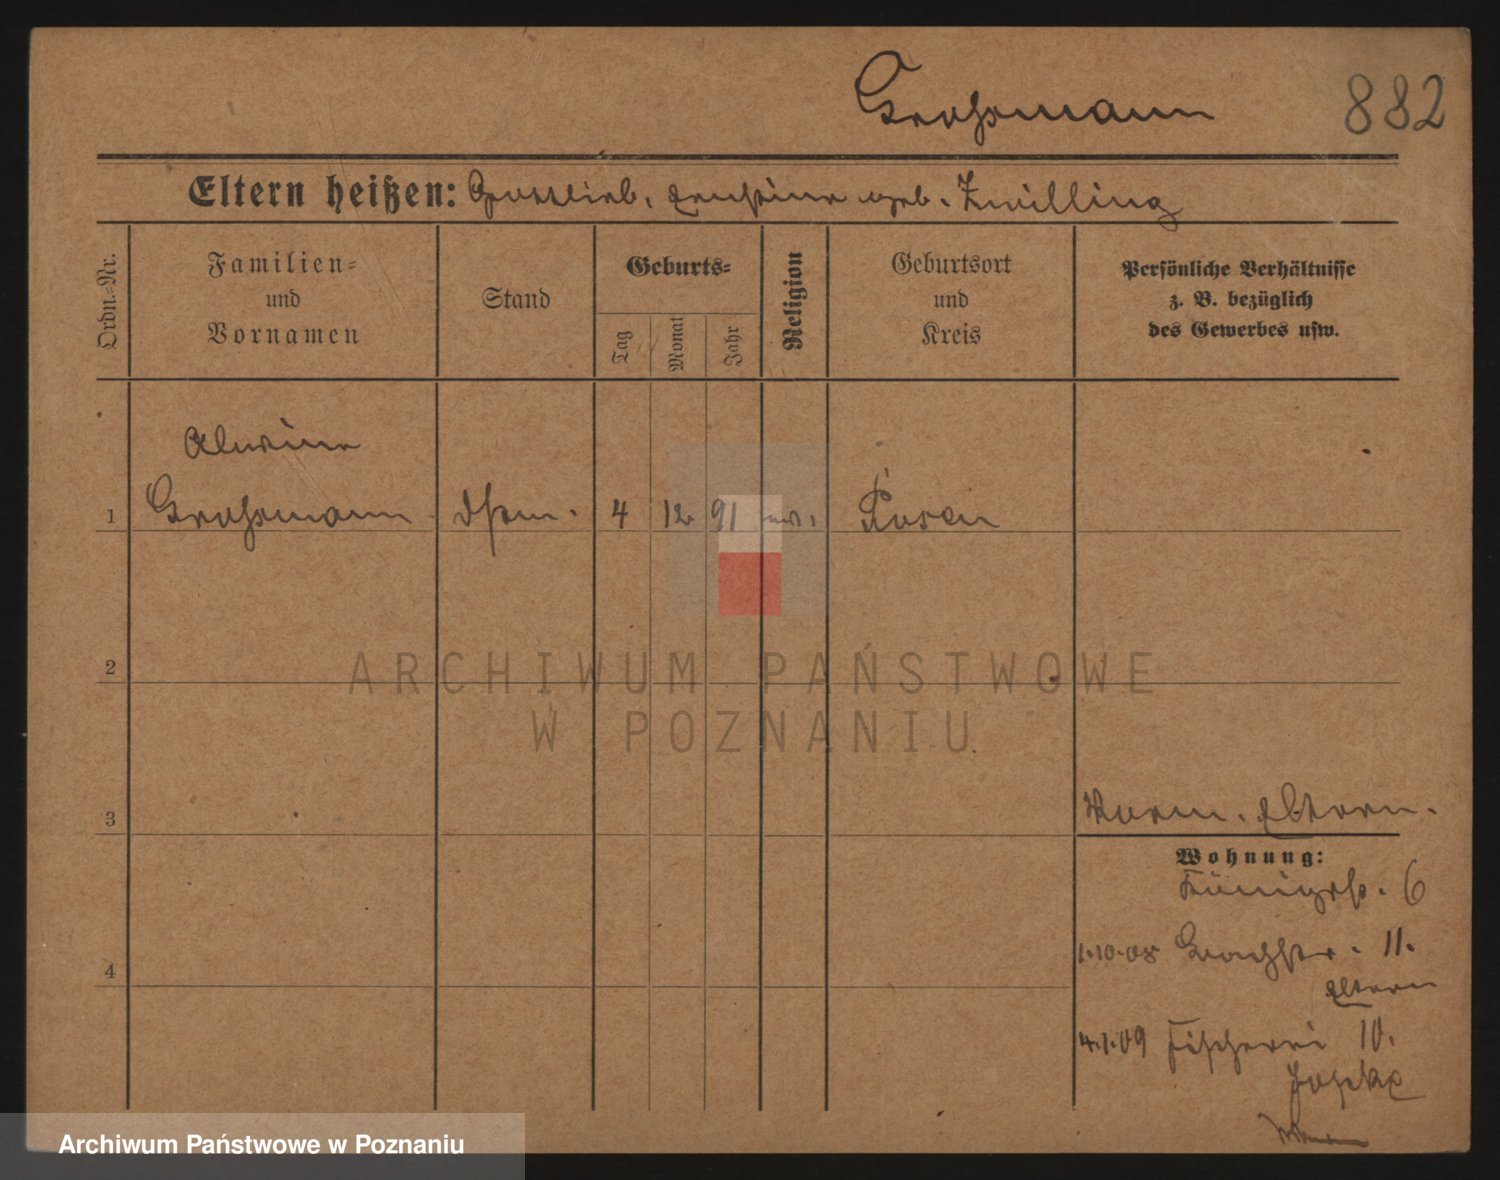 Grossmann
882
Eltern heißen: Gottlieb, Ernstine geb. Zwilling
Ordn.-Nr.
Familien- und Vornamen
Stand
Geburts-
Tag
Monat
Jahr
Religion
Geburtsort und Kreis
Persönliche Verhältnisse z. B. bezüglich des Gewerbes usw.
Alwine
1 Grossmann 4 12 91 Posen
2
ARCHIWUM PAŃSTWOWE
W POZNANIU
3
Eltern.
Wohnung:
Königstr. 6
4
1.10.08 11.
Eltern
4.1.09 Fischerei 10.
Archiwum Państwowe w Poznaniu